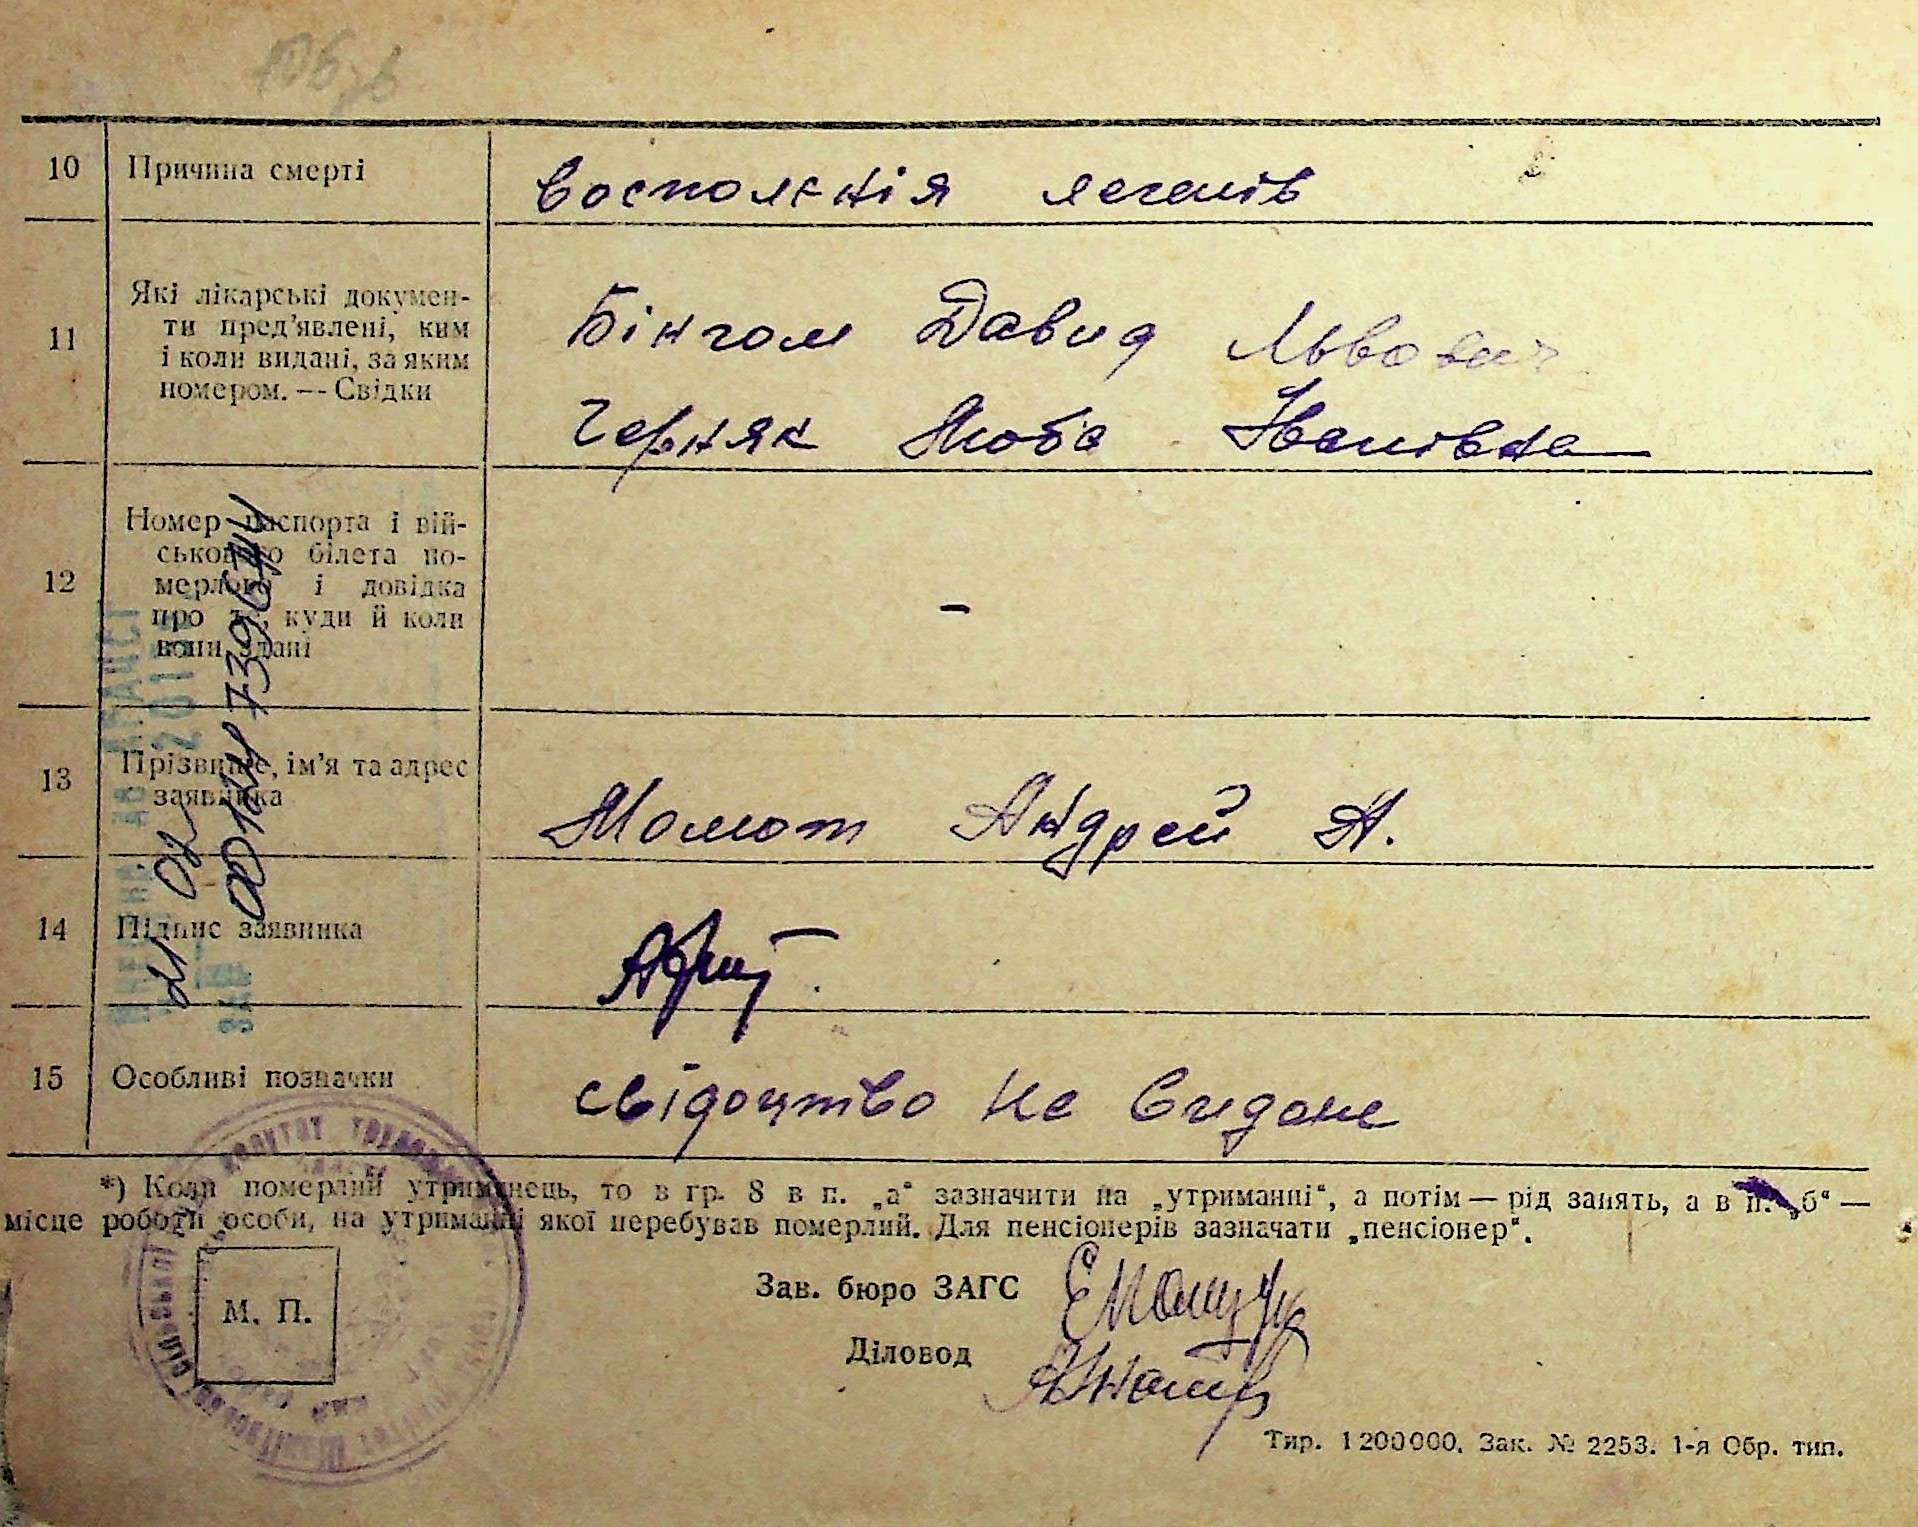 10 Причина смерті восполенія легенів
11 Які лікарські докумен-
ти пред'явлені, ким
і коли видані, за яким
номером. — Свідки
Бінгом Давид Львович
Черняк Люба Іванівна
12 Номер паспорта і вій-
ськового білета по-
мерлого і довідка
про те, куди й коли
вони здані
–
13 Прізвище, ім'я та адрес
заявника
Момот Андрей А.
14 Підпис заявника
15 Особливі позначки свідоцтво не видане
*) Коли померлий утриманець, то в гр. 8 в п. „а“ зазначити на „утриманні“, а потім — рід занять, а в п. „б“ —
місце роботи особи, на утриманні якої перебував померлий. Для пенсіонерів зазначати „пенсіонер“.
Зав. бюро ЗАГС
М. П.
Діловод
Тир. 1200000. Зак. № 2253. 1-я Обр. тип.